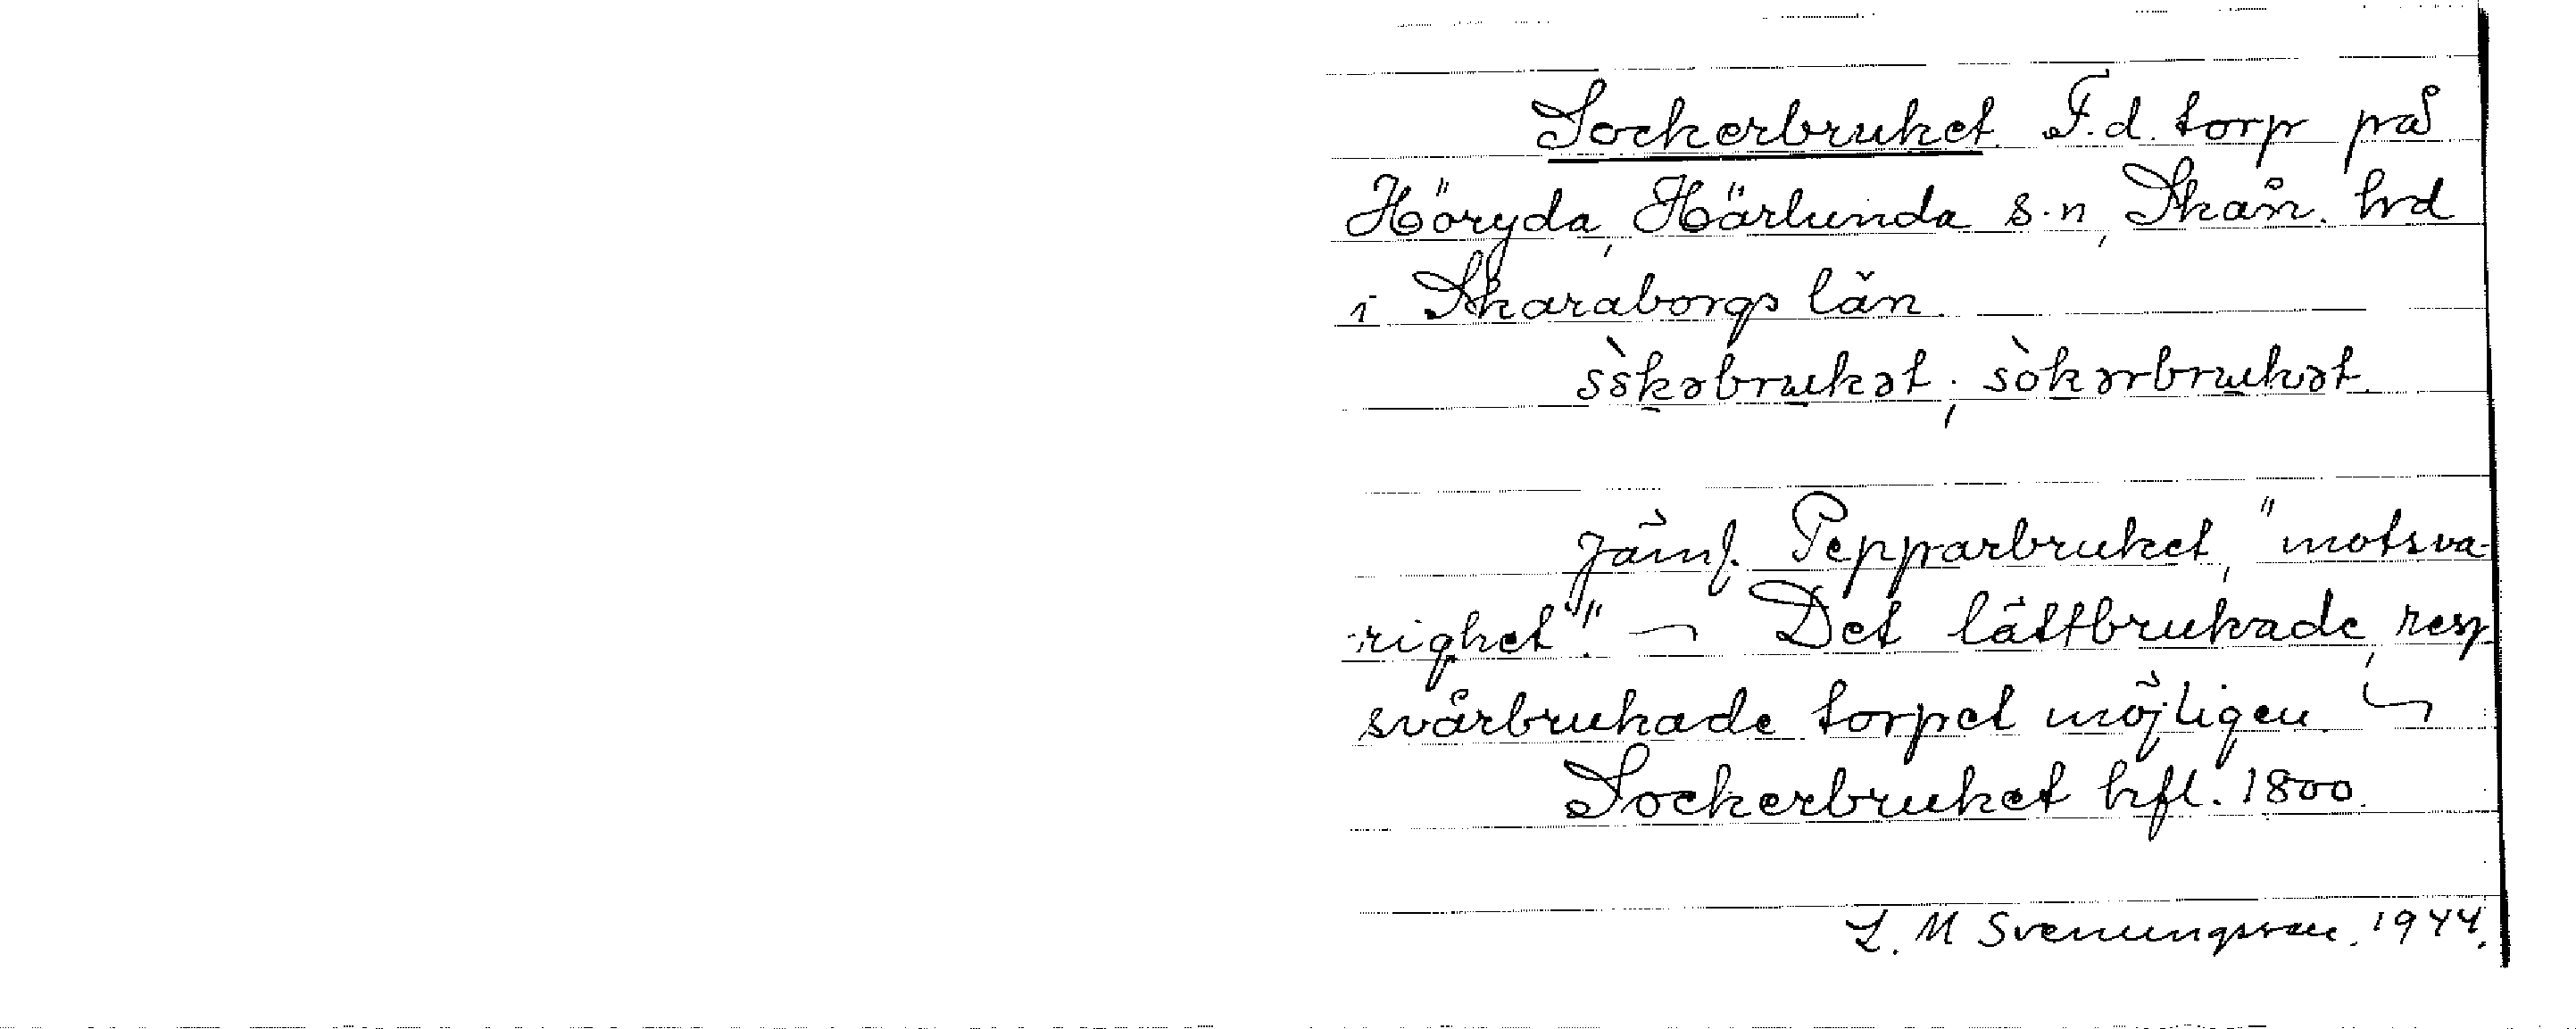 Sockerbruket. F.d. torp på
Höryda, Härlunda s.n, Skån. hrd
i Skaraborgs län.
sòkəbrukət; sòkərbrukət.
Jämf. Pepparbruket, "motsva-
righet". — Det lättbrukade, resp
svårbrukade torpet möjligen
Sockerbruket hfl. 1800.
L. M Svenungsson. 1944.